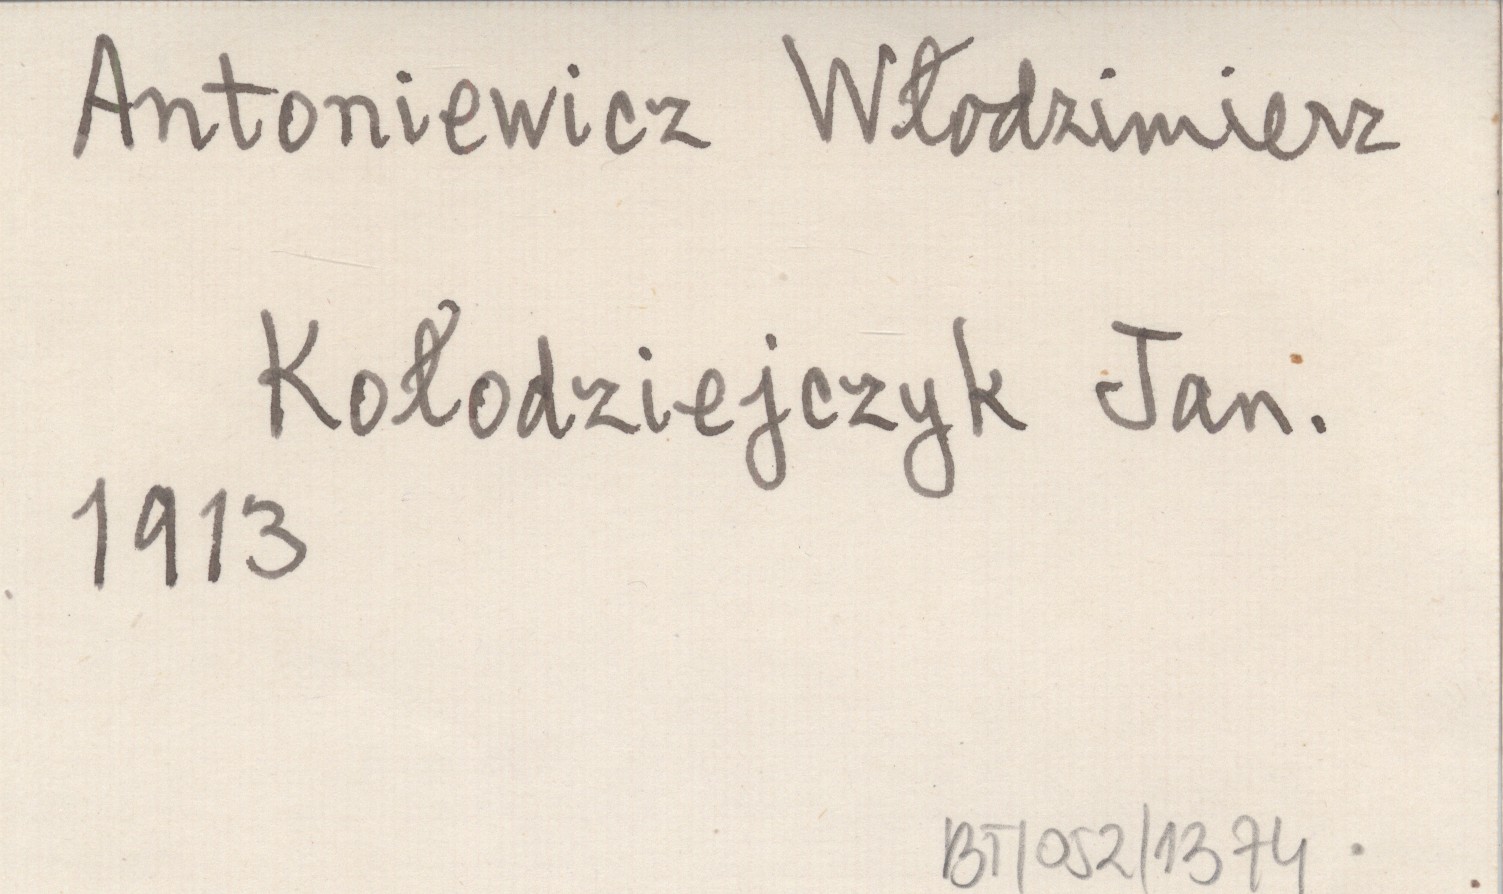 Antoniewicz Włodzimierz
Kołodziejczyk Jan.
1913
BT/052/1374